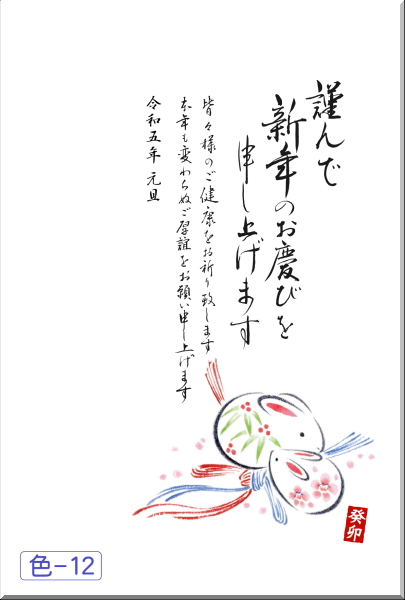 謹んで
新年のお慶びを
申し上げます
皆々様のご健康をお祈り致します
本年も変わらぬご厚誼をお願い申し上げます
令和五年 元旦
癸卯
色-12